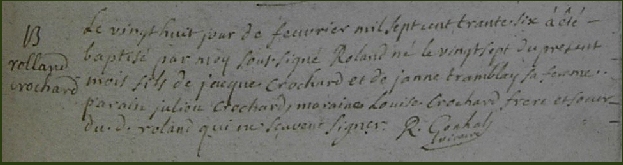 B
rolland
crochard
Le vingt huit jour de feuvrier mil sept cent trante six à été
baptisé par moy sous signé Roland né le vingt sept du present
mois fils de jacque Crochard et de janne tramblay sa femme
parain julien Crochard maraine Louise Crochard frere et soeur
du d. roland qui ne sçavent signer. R.